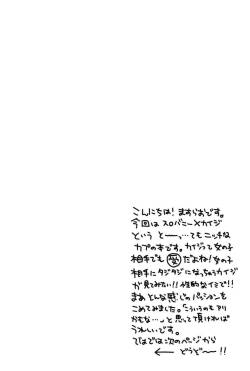 こんにちは! ますらおです。
今回は スロバニー×カイジ
という とーっ…てもニッチな
カプの本です。カイジって女の子
相手でも 受 だよね! 女の子
相手にタジタジになっちゃうカイジ
が見てみたい!! 性的なイミで!!
まぁ そんな感じのパッションを
こめてみました。「こういうのも アリ
かもな…」と思って頂ければ
うれしいです。
ではでは次のページから
← どうぞ〜!!